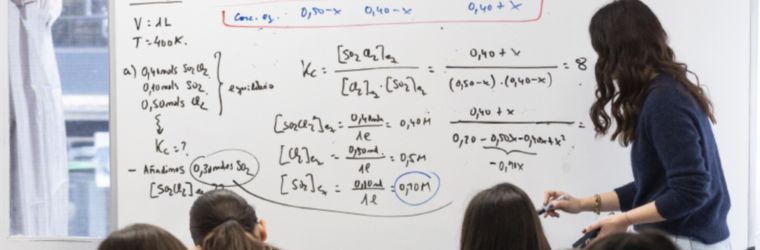 Conc. eq. 0,50-x 0,40-x 0,40+x
V = 1L
T = 400K.
a) 0,40mols SO₂Cl₂
0,10mols SO₂
0,50mols Cl₂
equilibrio
Kc = ?
- Añadimos 0,30mols SO₂
[SO₂Cl₂]eq ??
Kc = [SO₂Cl₂]eq / [Cl₂]eq · [SO₂]eq = 0,40 + x / (0,50-x) · (0,40-x) = 8
[SO₂Cl₂]eq = 0,40mols / 1l = 0,40M
[Cl₂]eq = 0,50mol / 1l = 0,5M
[SO₂]eq = 0,10mol / 1l = 0,10M
0,40 + x / 0,20 - 0,50x - 0,40x + x² =
-0,90x